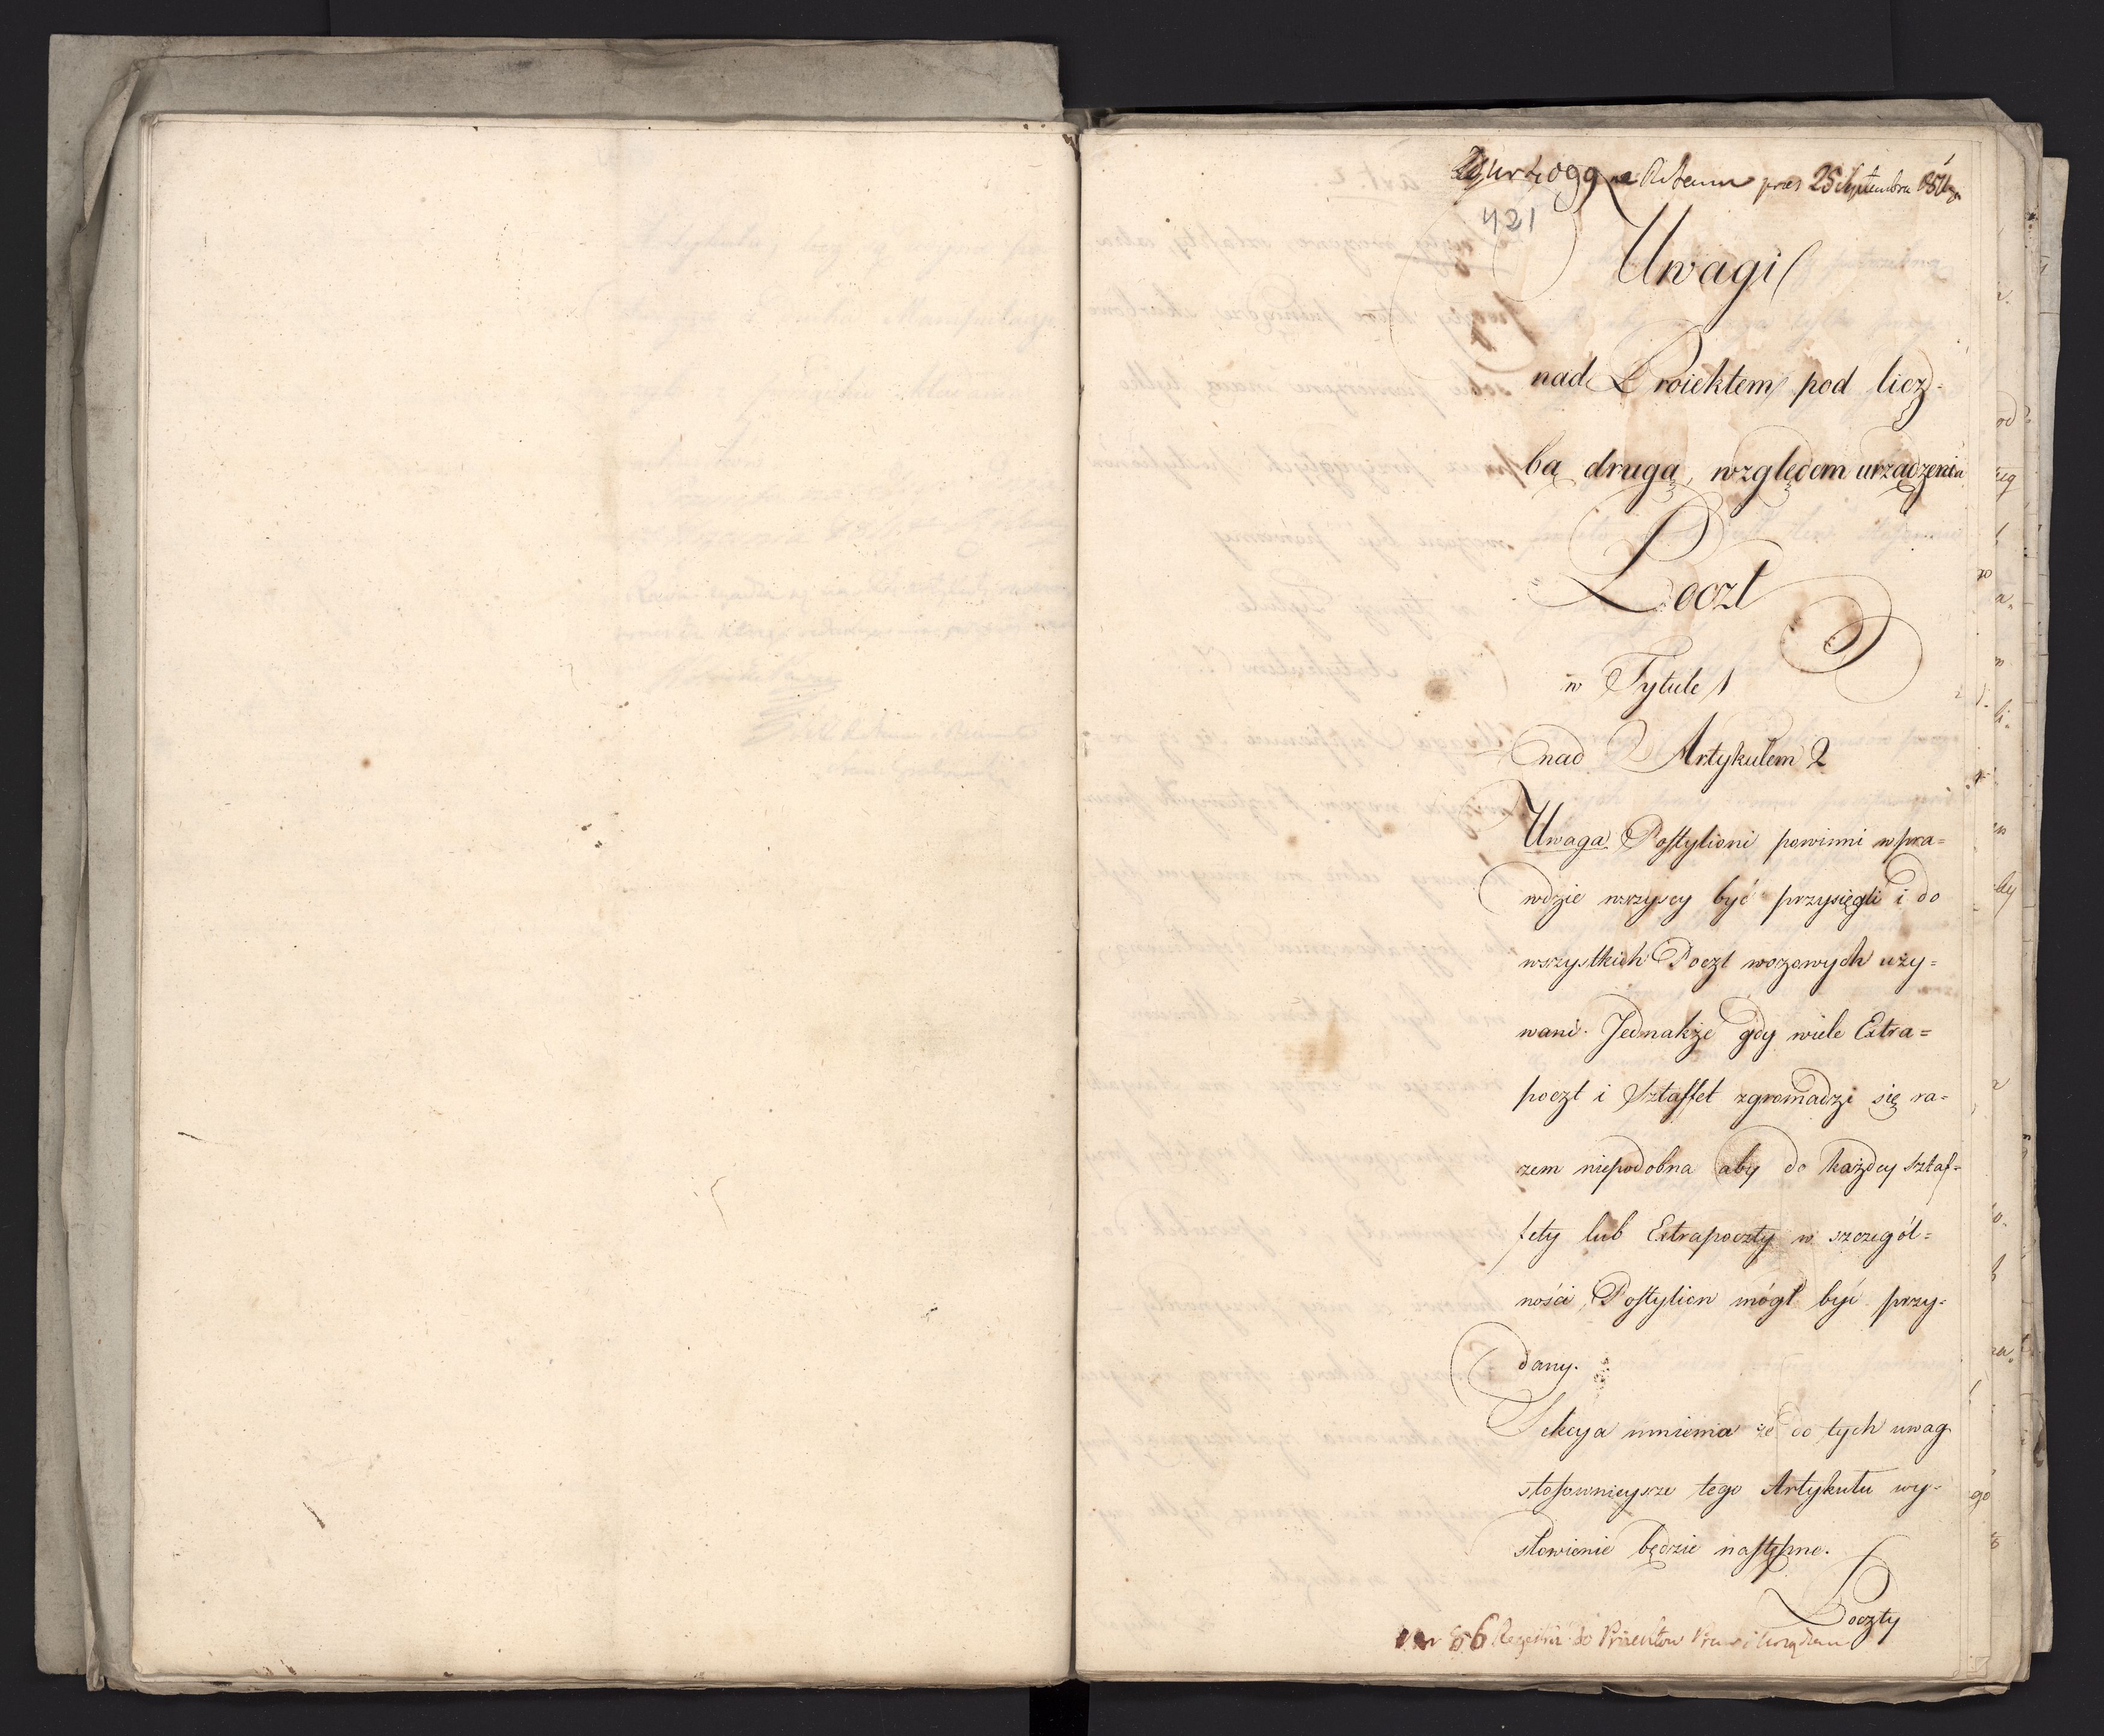 25 Septembra
421
Uwagi
nad Proiektem pod licz-
bą drugą, względem urządzenia
Poczt
w Tytule 1
nad Artykułem 2
Uwaga Postylioni powinni wpra=
wdzie wszyscy być przysięgli i do
wszystkich Poczt wozowych uży=
wani. Jednakże gdy wiele Extra=
poczt i Sztaffet zgromadzi się ra=
zem niepodobna aby do każdey sztaf=
fety lub Extrapoczty w szczegól=
ności, Postylion mógł być przy=
dany.
Sekcya mniema że do tych uwag
stosownieysze tego Artykułu wy=
słowienie będzie następne.
Poczty